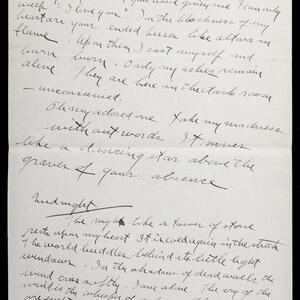 you have given me I can only
weep "I love you". In the blackness of my
heart are your ended kisses like altars in
flame. Upon them I cast myself and
burn, burn. Only my ashes remain
alone They are here in the dark room
— unconsumed.
Oh my adored one take my madness
— without words It moves
like a dancing star above the
graves of your absence
Midnight
The night like a tower of stone
rests upon my heart It is cold again in the streets
The world huddles behind its little light
windows. In the shadow of dead walls the
wind cries softly. I am alone. The cry of the
wind is the whisper of